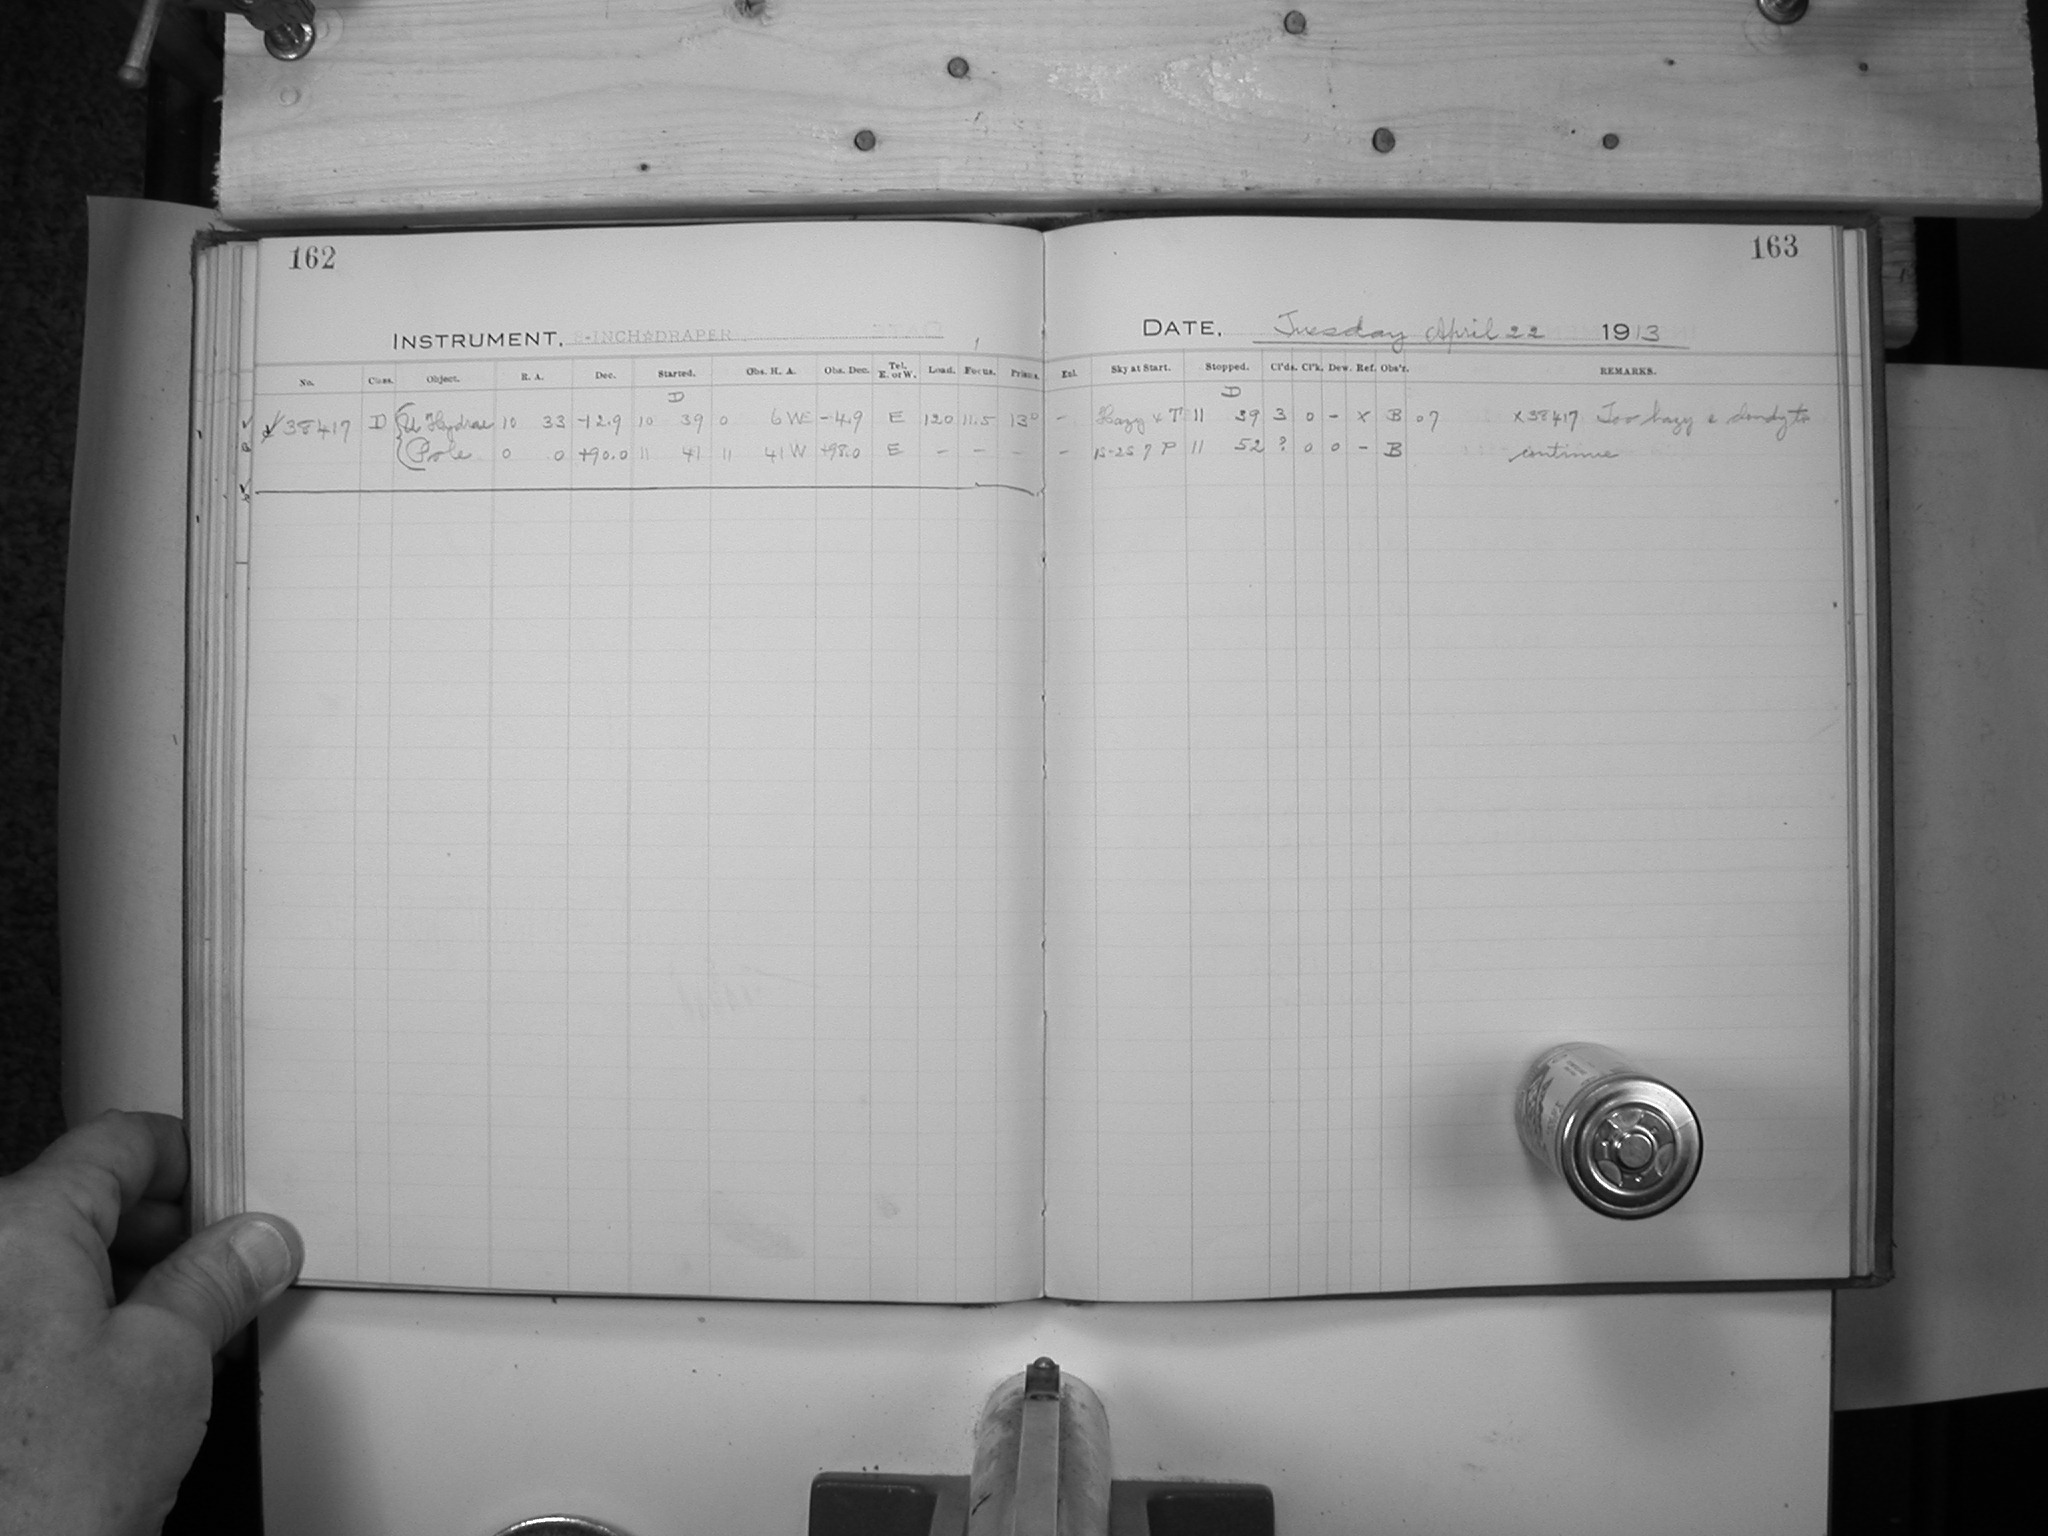 162
INSTRUMENT. 8-INCH DRAPER
No. Class. Object. R. A. Dec. Started. Obs. H. A. Obs. Dec. Tel. E. or W. Load. Focus. Prism.
D
38417 D U Hydrae 10 33 -12.9 10 39 0 6 W -4.9 E 120 11.5 13°
Pole 0 0 +90.0 11 41 11 41 W +98.0 E - - -
163
DATE. Tuesday April 22 1913
Enl. Sky at Start. Stopped. Cl'ds. Cl'k. Dew. Ref. Obs'r. REMARKS.
D
- Hazy & T 11 39 3 0 - x B 07 x38417 Too hazy & cloudy to
- 15-25 7 P 11 52 ? 0 0 - B continue